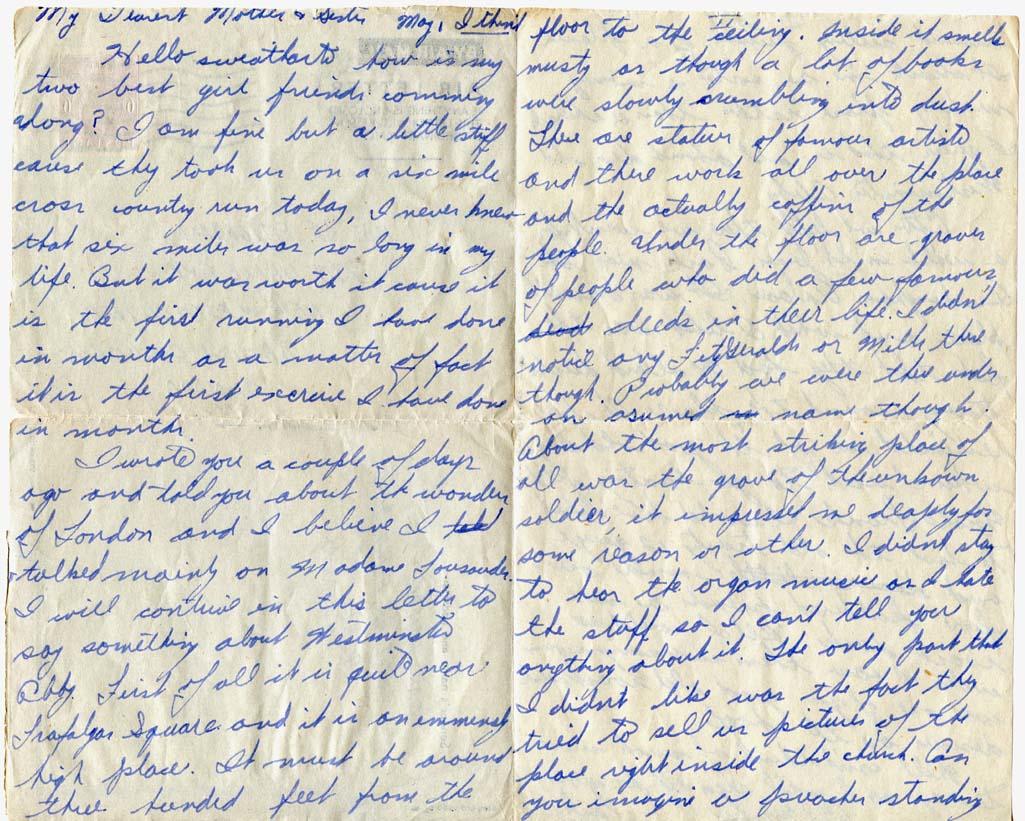 My Dearest Mother & Sister May, I think
Hello sweatharts how is my
two best girl friends comming
along? I am fine but a little stiff
cause they took us on a six mile
cross country run today, I never knew
that six miles was so long in my
life. But it was worth it cause it
is the first running I have done
in months as a matter of fact
it is the first excercise I have done
in months.
I wrote you a couple of days
ago and told you about the wonders
of London and I believe I told
talked mainly on Madame Tousauder.
I will continue in this letter to
say something about Westminster
Abby. First of all it is quite near
Trafalgar Square and it is an emmenst
high place. It must be around
three hunded feet from the
floor to the ceiling. Inside it smells
musty as though a lot of books
were slowly crumbling into dust.
There are statues of famous artists
and there works all over the place
and the actually coffins of the
people. Under the floor are graves
of people who did a few famous,
deeds in their life. I didn't
notice any FitzGeralds or Mills there
though. Probably we were there under
an asumed name though.
About the most striking place of
all was the grave of the unkown
soldier, it impressed me deaply for
some reason or other. I didnt stay
to hear the organ music as I hate
the stuff so I can't tell you
anything about it. The only part that
I didn't like was the fact they
tried to sell us pictures of the
place right inside the church. Can
you imagine a preacher standing